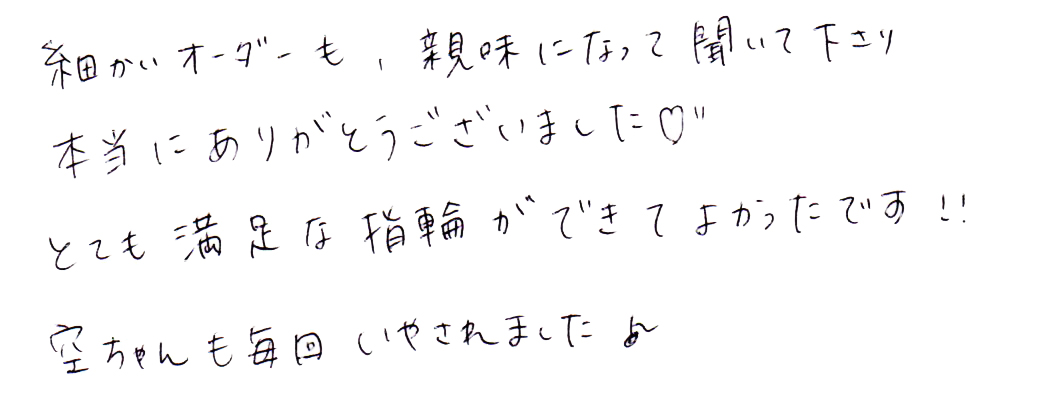 細かいオーダーも、親味になって聞いて下さり
本当にありがとうございました♡"
とても満足な指輪ができてよかったです!!
空ちゃんも毎回いやされました